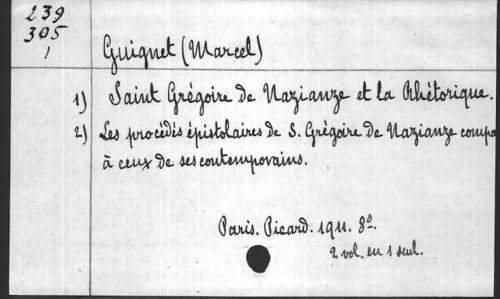 239
305
1
Guignet (Marcel)
1) Saint Grégoire de Nazianze et la Rhétorique.
2) Les procédés épistolaires de S. Grégoire de Nazianze compa
à ceux de ses contemporains.
Paris. Picard. 1911. 8º.
2 vol. en 1 seul.